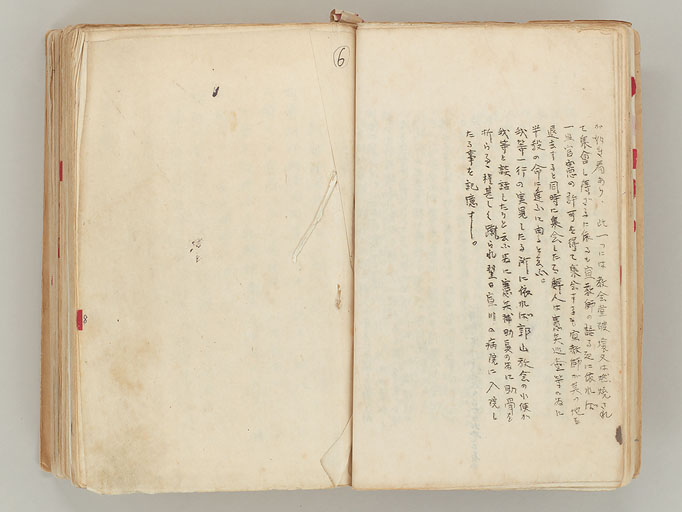 6
あり、此一つには教会堂破壊又は燃焼され
て集會し得ざるに依るも宣教師の語る処に依れば
一旦官憲の許可を得て集会するも宣教師が其の地を
退去すると同時に集会したる鮮人は憲兵巡査等の為に
半殺の命に逢ふに由ると云ふ。
我等一行の実見したる所に依れば郭山教会の小使が
我等と談話したりと云ふ為に憲兵補助員の為に肋骨を
折らるゝ様甚しく蹴られ翌日宣川の病院に入院し
たる事を記憶す。